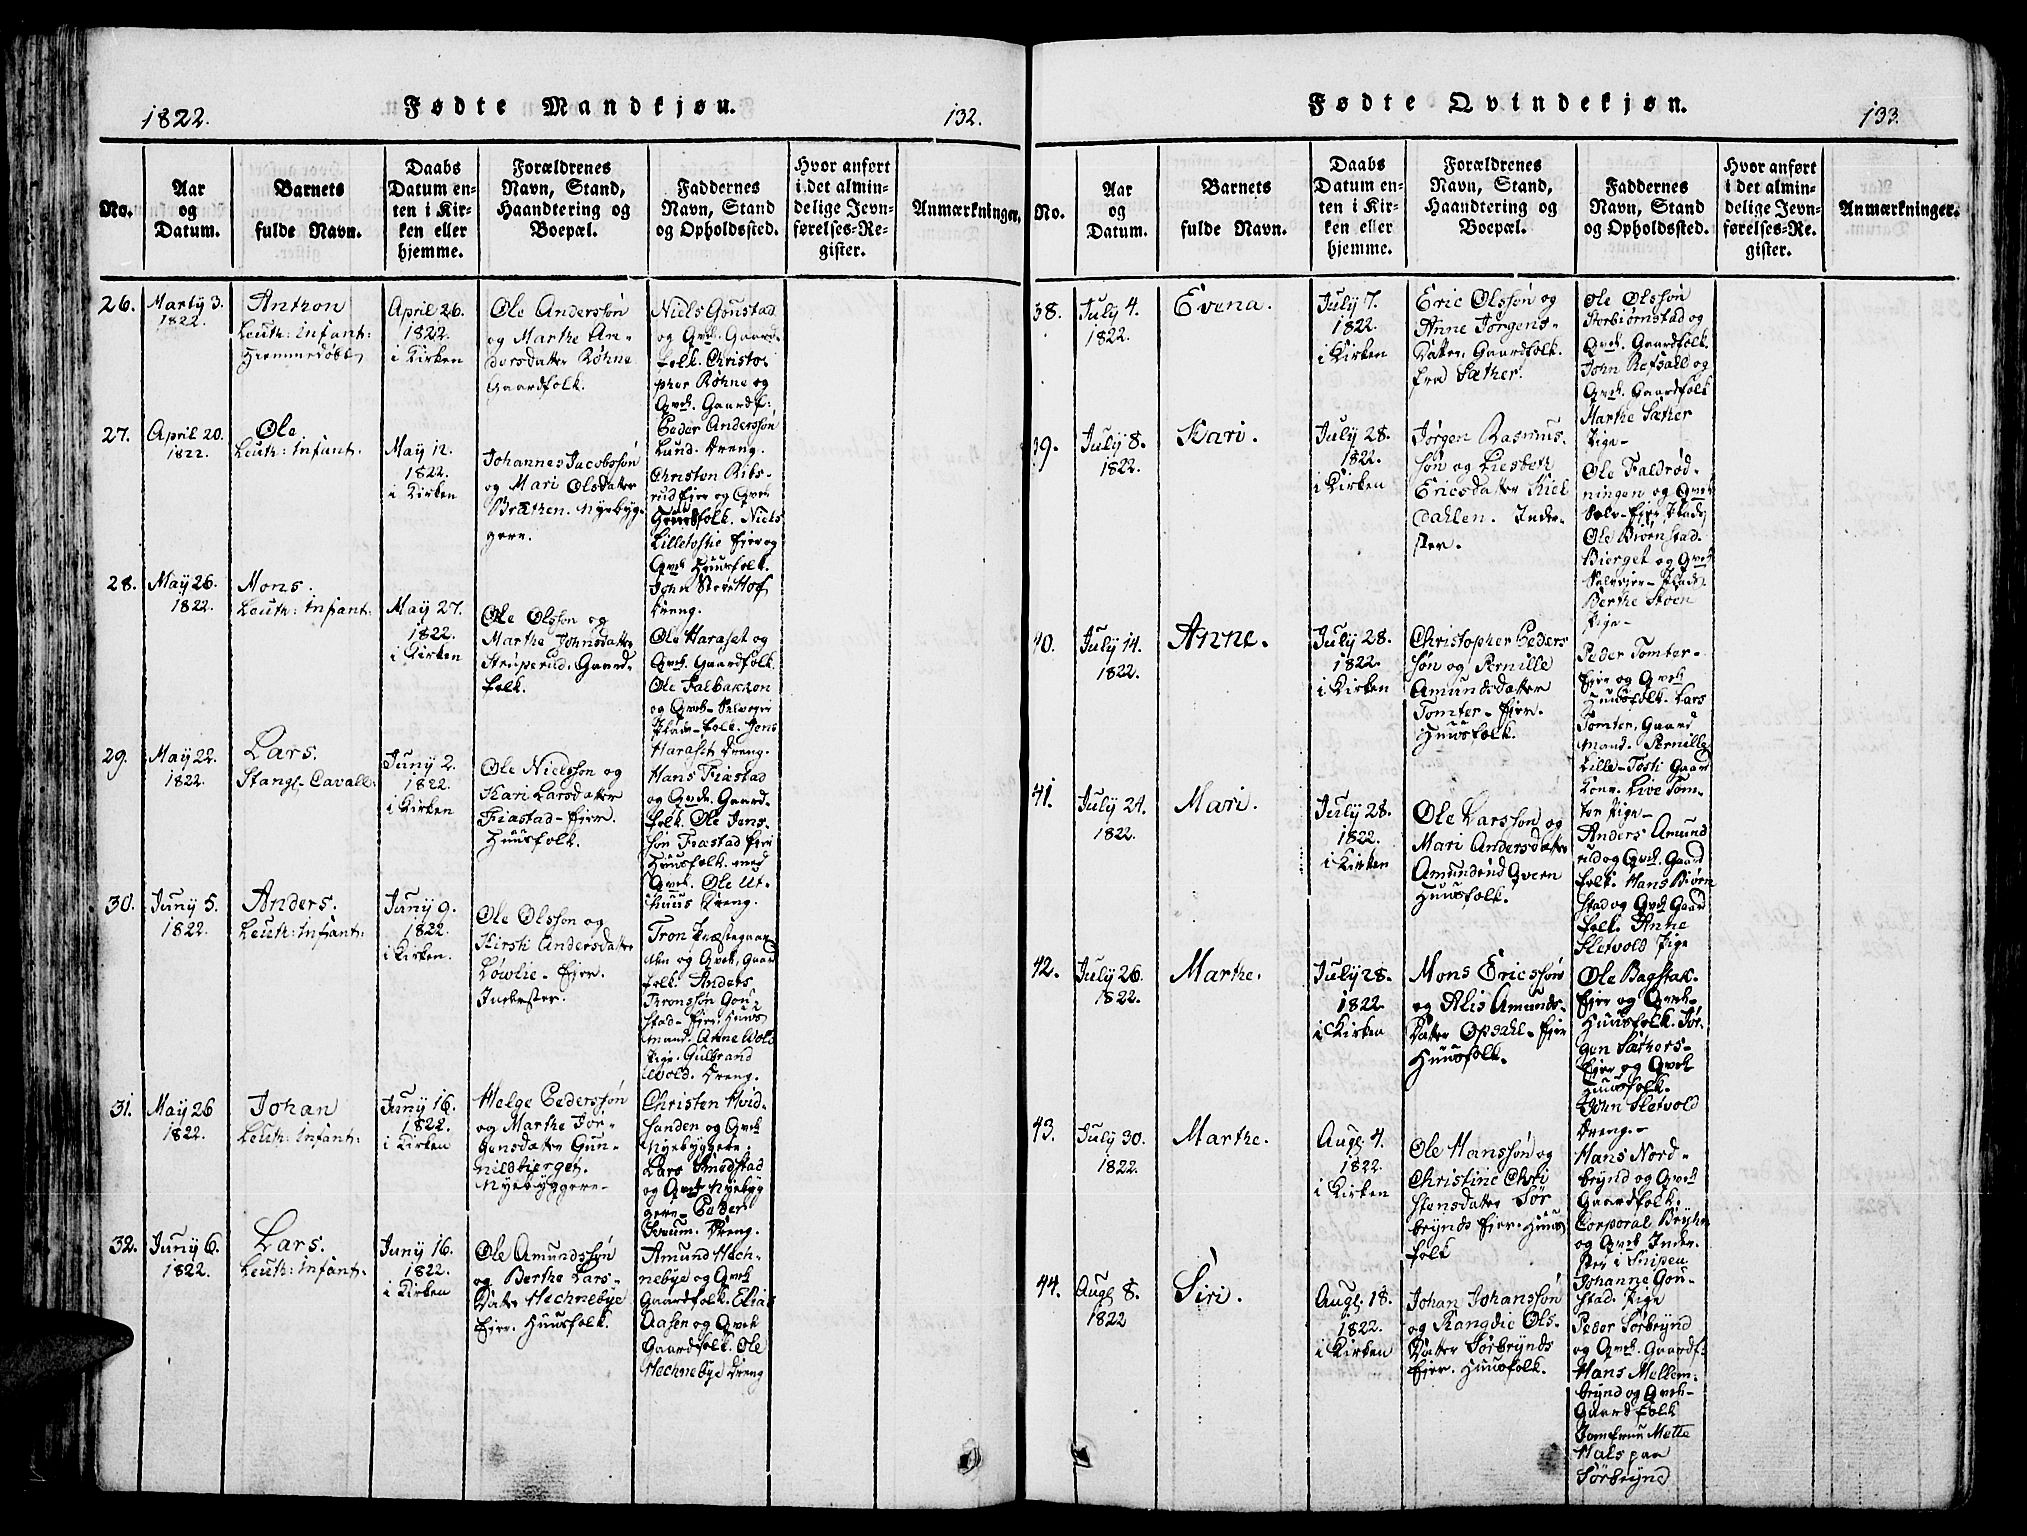 1822.
Fødte Mandkjøn.
132.
No.
Aar
og
Datum.
Barnets
fulde Navn.
Daabs
Datum en-
ten i Kir-
ken eller
hjemme.
Forældrenes
Navn, Stand,
Haandtering og
Boepæl.
Faddernes
Navn, Stand
og Opholdssted.
Hvor anført
i det almin-
delige Jevn-
førelses-Re-
gister.
Anmærkninger.
26.
Marty 3.
1822.
Anthon
Leuth: Infant:
April 26.
1822.
i Kirken
Ole Anderssøn
og Marthe An-
dersdatter Røhne
Gaardfolk.
Niels Gonstad
og Qvch. Gaard-
folk. Christo-
pher Røhne og
Qvch. Gaardf:
Peder Anderssøn
Lund. Dreng.
27.
April 20.
1822.
Ole
Leuth: Infant.
May 12.
1822.
i Kirken
Johannes Jacobssøn
og Mari Olsdatter
Bræthen. Nyebyg-
gere.
Christen Kits-
rud Ejer og Qvch
folk. Niels
Lilletostie Ejer og
Qvch Huusfolk.
John Hof
Dreng.
28.
May 26.
1822.
Mons.
Leuth: Infant.
May 27.
1822.
i Kirken
Ole Olssøn og
Marthe Johnsdatter
Struperud. Gaard-
folk.
Ole Haraset og
Qvch. Gaardfolk
Ole Falbakken
og Qvch- Selveger
Plads-folk. Jens
Haraset Dreng.
29.
May 22.
1822.
Lars.
Stangl. Cavall.
Juny 2.
1822.
i Kirken
Ole Nielssøn og
Kari Larsdatter
Fiæstad- Ejer.
Huusfolk.
Hans Fiæstad
og Qvch. Gaard-
folk. Ole Jens-
søn Fiæstad Ejer
Huusfolk. med
Qvch. Ole Ut-
huus Dreng.
30.
Juny 5.
1822.
Anders.
Leuth: Infant:
Juny 9.
1822.
i Kirken.
Ole Olssøn og
Kirsti Andersdatter
Løwlie- Ejer.
Inderster.
Tron Præstegaar-
den og Qvch. Gaard
folk. Anders
Thronssøn Gon-
stad- Ejer. Huus
mand. Anne Wold
Pige. Gulbrand
Wold. Dreng.
31.
May 26
1822.
Johan
Leuth: Infant:
Juny 16.
1822.
i Kirken
Helge Pederssøn
og Marthe Jør-
gensdatter Gun-
nildbierget.
Nyebyggere-
Christen Hvid-
sanden og Qvch
Nyebyggere-
Lars Smedstad
og Qvch Nyebyg
gere- Peder
Dreng.
32.
Juny 6.
1822.
Lars.
Leuth: Infant.
Juny 16.
1822.
i Kirken
Ole Amundssøn
og Berthe Lars-
datter Hechnebye
Ejer. Huusfolk.
Amund Hech-
nebye og Qvch
Gaardfolk. Elias
Aasen og Qvch
Gaardfolk. Ole
Hechnebye Dreng
Fødte Qvindekjøn.
133.
No.
Aar
og
Datum.
Barnets
fulde Navn.
Daabs
Datum en-
ten i Kir-
ken eller
hjemme.
Forældrenes
Navn, Stand,
Haandtering og
Boepæl.
Faddernes
Navn, Stand
og Opholdssted.
Hvor anført
i det almin-
delige Jevn-
førelses-Re-
gister.
Anmærkninger.
38.
July 4.
1822.
Evena.
July 7.
1822.
i Kirken
Eric Olssøn og
Anne Jørgens-
datter. Gaardfolk.
fra Sæther.
Ole Olssøn
Storbiørnstad og
Qvch. Gaardfolk.
John Refsahl og
Qvch. Gaardfolk
Marthe Sæther
Pige-
39.
July 8.
1822.
Kari.
July 28.
1822.
i Kirken
Jørgen Rasmus-
søn og Liesbeth
Ericsdatter Kiel
dahlen. Inder-
ster.
Ole Faldrød-
ningen og Qvch
Selv-Ejer Plads
Ole Bioenstad.
Bierget og Qvch
Selvejer- Plads
Berthe Stoen
Pige-
40.
July 14.
1822.
Anne.
July 28.
1822.
i Kirken
Christopher Peders
søn og Pernille
Amundsdatter
Tomter- Ejer.
Huusfolk.
Peder Tomter-
Ejer og Qvch
Huusfolk. Lars
Tomter. Gaard
mand. Pernille
Lille-Tosti Gaard
Kone. Live Tom-
ter Pige-
41.
July 24.
1822.
Mari.
July 28.
1822.
i Kirken
Ole Larssøn og
Mari Andersdatter
Amundrud Qvern
Huusfolk.
Anders Amund
rud og Qvch. Gaard
folk. Hans Biørn
stad og Qvch Gaard
folk. Anne
Sletvold Pige
42.
July 26.
1822.
Marthe.
July 28.
1822.
i Kirken
Mons Ericssøn
og Alis Amunds-
datter Opdahl- Ejer
Huusfolk.
Ole Bagstak-
Ejer og Qvch-
Huusfolk. Jør-
gen Sæthers-
Ejer og Qvch
Huusfolk.
John Sletvold
Dreng.-
43.
July 30.
1822.
Marthe.
Augl. 4.
1822.
i Kirken
Ole Hanssøn og
Christine Chri
stensdatter Sør
brynds Ejer. Huus
folk
Hans Nord-
brynd og Qvch
Gaardfolk.
Corporal Bryhn
og Qvch Inder-
ster i Snipen.
Johanne Gon-
stad. Pige
44.
Augl. 8.
1822
Siri.
Augl. 18.
1822.
i Kirken
Johan Johanssøn
og Rangdie Ols-
datter Sørbrynds
Ejer. Huusfolk.
Peder Sørbrynd
og Qvch. Gaardf-
Hans Mellem-
brynd og Qvch-
Gaardfolk
Jomfruu Mette
Hals paa
Sørbrynd